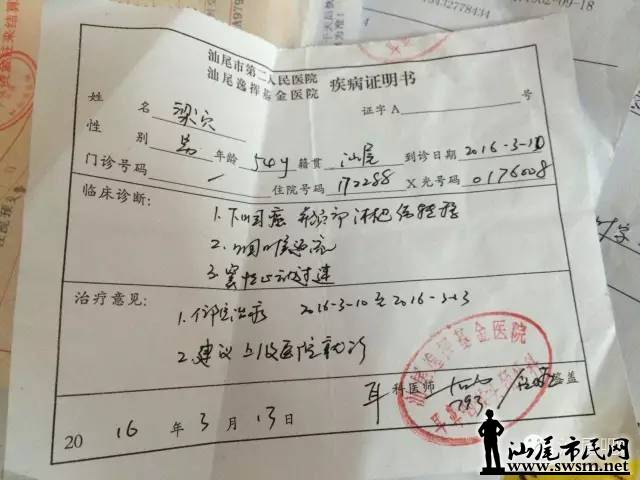 2-09-18
19432778434
汕尾市第二人民医院
汕尾逸挥基金医院 疾病证明书
证字A 号
姓名 梁穴
性别 男 年龄 54y 籍贯 汕尾 到诊日期 2016-3-10
门诊号码 住院号码 172288 X光号码 0176008
临床诊断:
1.下咽癌 并颈部淋巴结转移
2.咽喉返流
3.窦性心动过速
治疗意见:
1.住院治疗 2016-3-10至2016-3-13
2.建议上级医院就诊
耳 科医师 签盖
793
2016年3月13日
汕尾逸挥基金医院
汕尾市民网
www.swsm.net